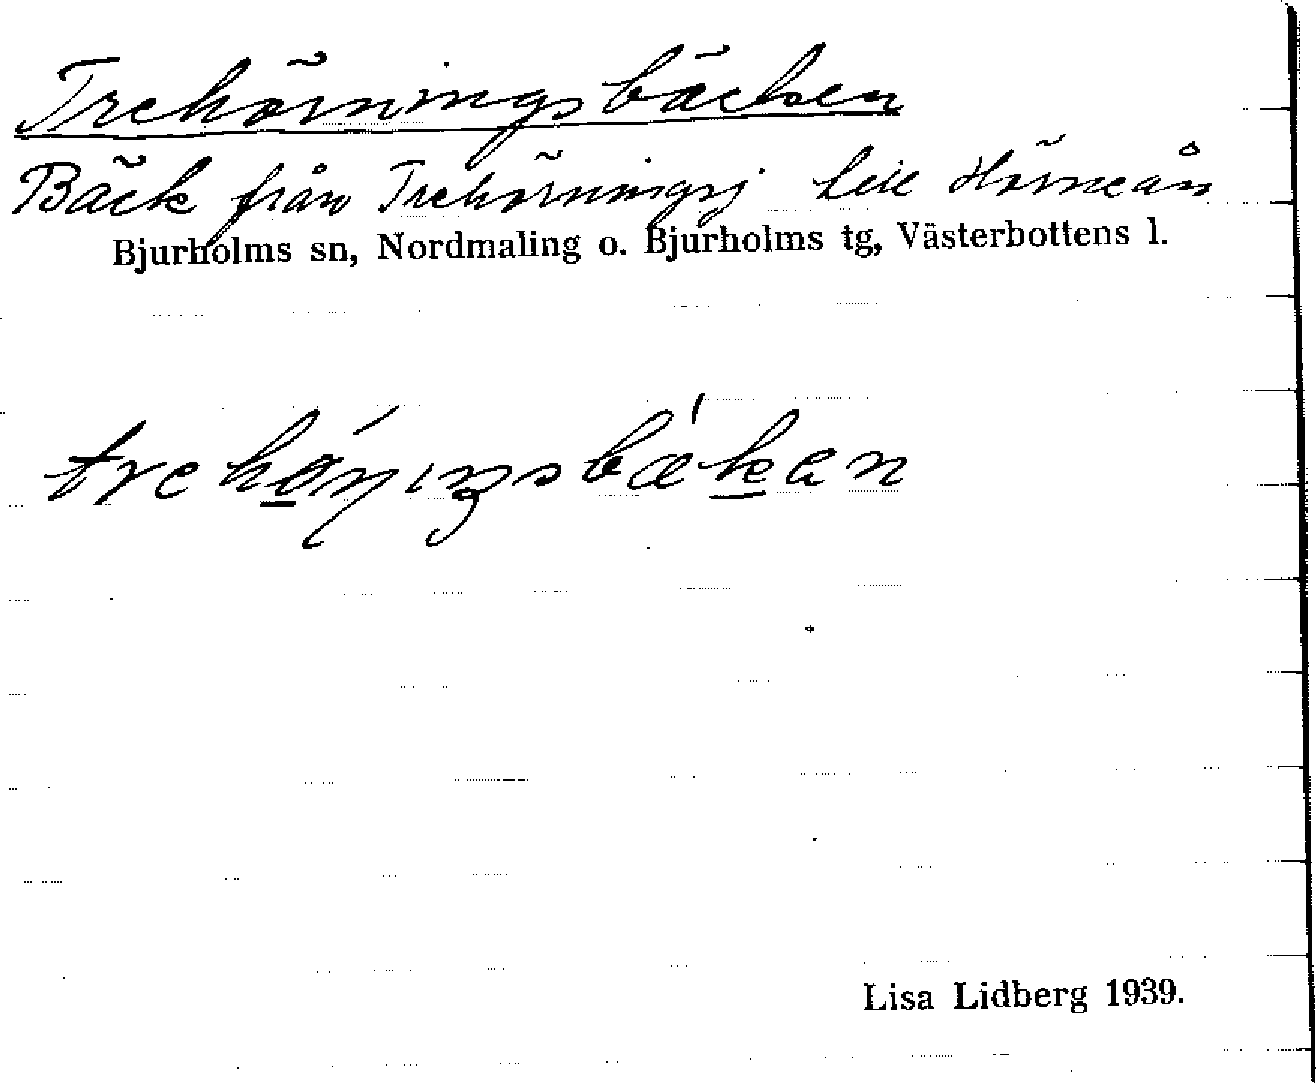 Trehörningsbäcken
Bäck från Trehörningsj till Hörneån
Bjurholms sn, Nordmaling o. Bjurholms tg, Västerbottens l.
Lisa Lidberg 1939.